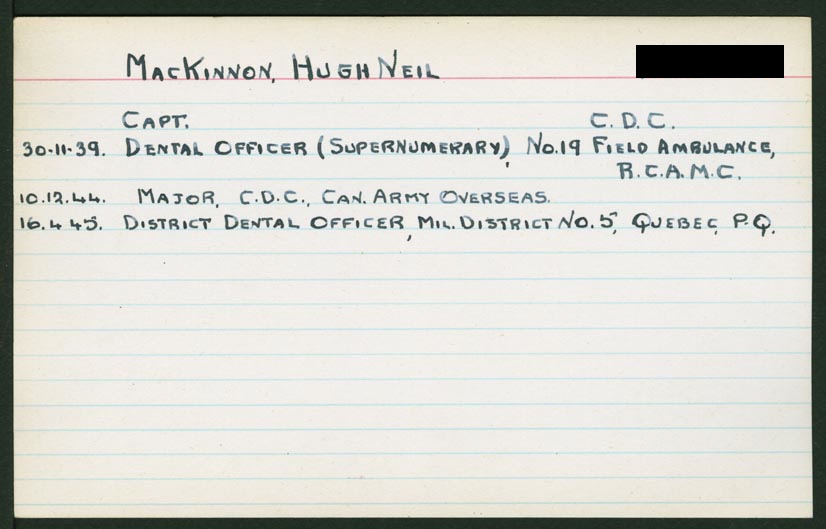 MacKinnon, Hugh Neil
Capt. C.D.C.
30-11-39. Dental Officer (Supernumerary), No.19 Field Ambulance,
R.C.A.M.C.
10.12.44. Major, C.D.C., Can. Army Overseas.
16.4.45. District Dental Officer, Mil. District No. 5, Quebec, P.Q.